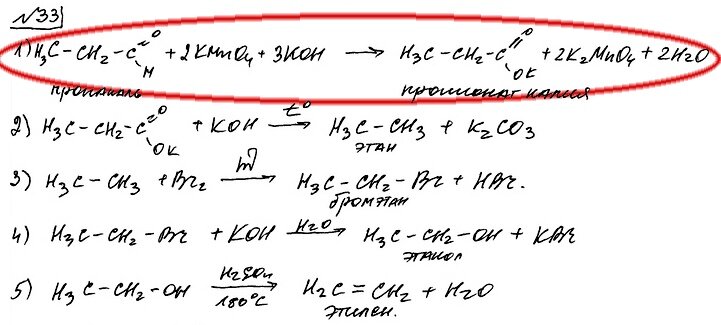 №33
1) H₃C–CH₂–C(=O)H + 2KMnO₄ + 3KOH → H₃C–CH₂–C(=O)OK + 2K₂MnO₄ + 2H₂O
пропаналь пропионат калия
2) H₃C–CH₂–C(=O)OK + KOH –t°→ H₃C–CH₃ + K₂CO₃
этан
3) H₃C–CH₃ + Br₂ –hν→ H₃C–CH₂–Br + HBr.
бромэтан
4) H₃C–CH₂–Br + KOH –H₂O→ H₃C–CH₂–OH + KBr
этанол
5) H₃C–CH₂–OH –H₂SO₄, 180°C→ H₂C=CH₂ + H₂O
этилен.